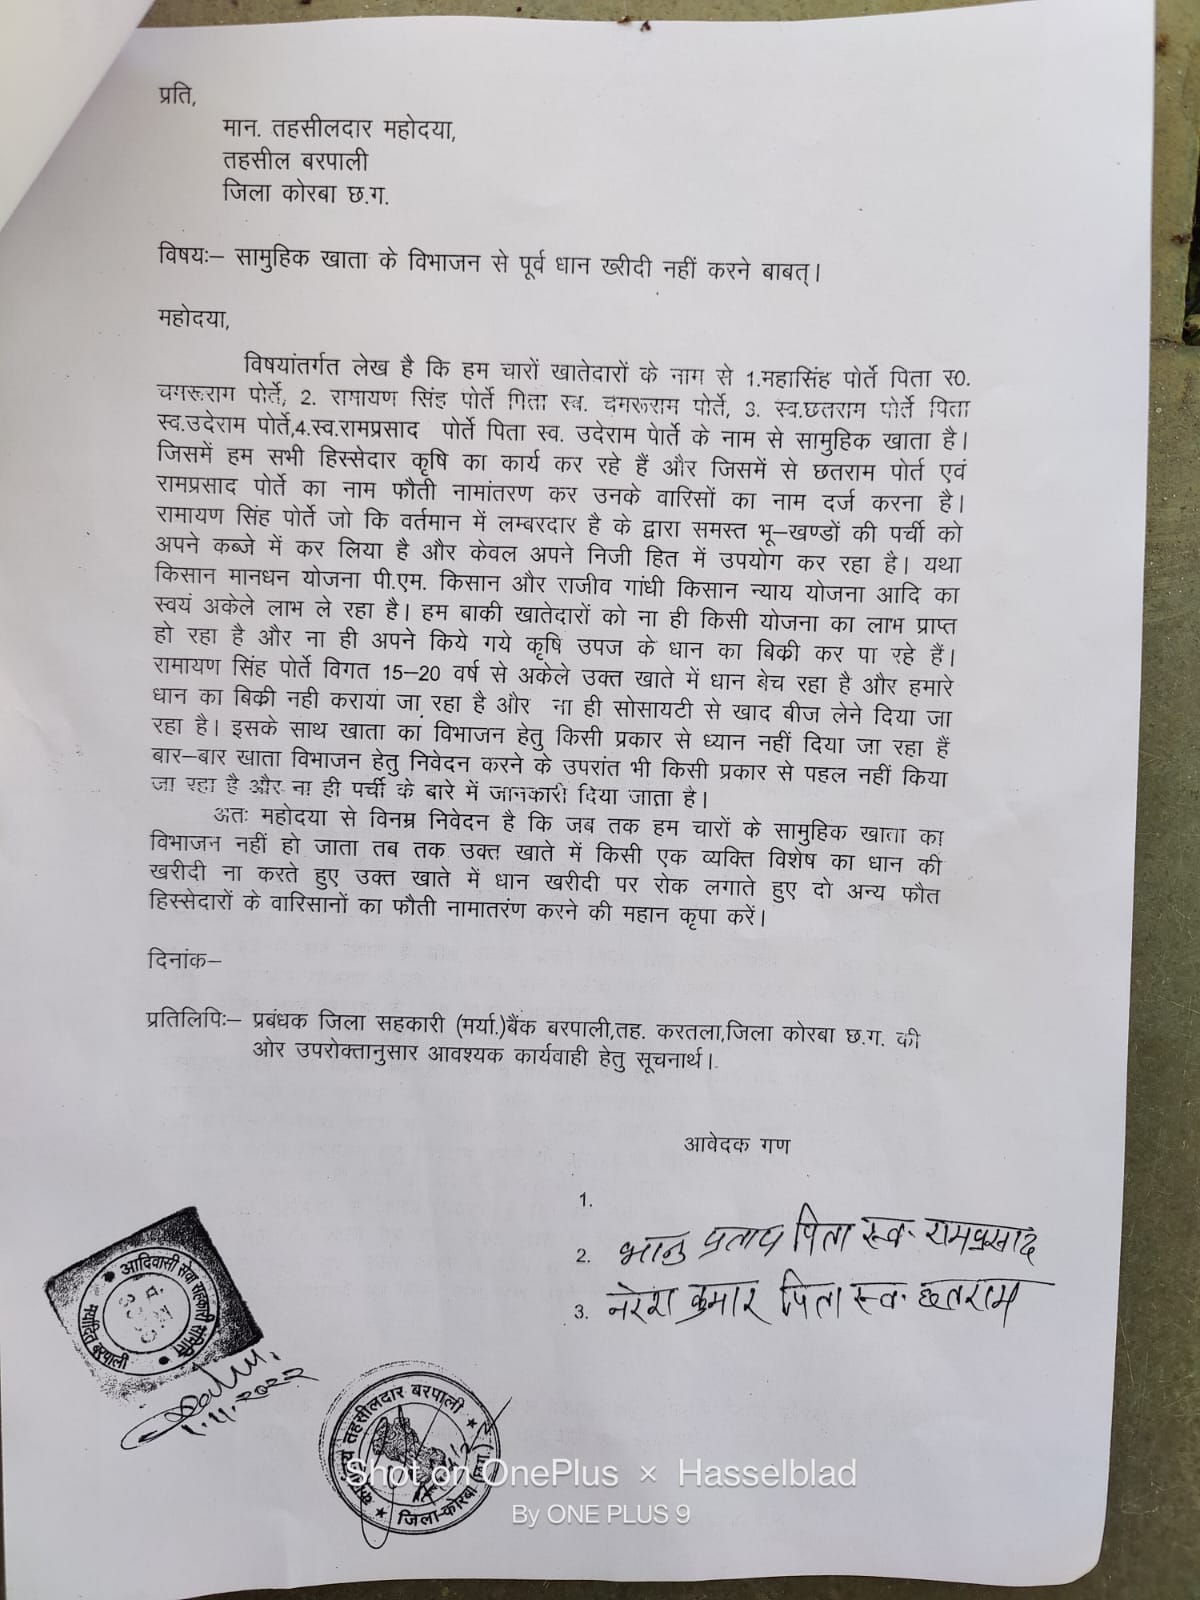 प्रति,
मान. तहसीलदार महोदया,
तहसील बरपाली
जिला कोरबा छ.ग.
विषयः– सामुहिक खाता के विभाजन से पूर्व धान खरीदी नहीं करने बाबत्।
महोदया,
विषयांतर्गत लेख है कि हम चारों खातेदारों के नाम से 1.महासिंह पोर्ते पिता स0.
चमरूराम पोर्ते, 2. रामायण सिंह पोर्ते पिता स्व. चमरूराम पोर्ते, 3. स्व.छतराम पोर्ते पिता
स्व.उदेराम पोर्ते,4.स्व.रामप्रसाद पोर्ते पिता स्व. उदेराम पोर्ते के नाम से सामुहिक खाता है।
जिसमें हम सभी हिस्सेदार कृषि का कार्य कर रहे हैं और जिसमें से छतराम पोर्त एवं
रामप्रसाद पोर्ते का नाम फौती नामांतरण कर उनके वारिसों का नाम दर्ज करना है।
रामायण सिंह पोर्ते जो कि वर्तमान में लम्बरदार है के द्वारा समस्त भू–खण्डों की पर्ची को
अपने कब्जे में कर लिया है और केवल अपने निजी हित में उपयोग कर रहा है। यथा
किसान मानधन योजना पी.एम. किसान और राजीव गांधी किसान न्याय योजना आदि का
स्वयं अकेले लाभ ले रहा है। हम बाकी खातेदारों को ना ही किसी योजना का लाभ प्राप्त
हो रहा है और ना ही अपने किये गये कृषि उपज के धान का बिकी कर पा रहे हैं।
रामायण सिंह पोर्ते विगत 15–20 वर्ष से अकेले उक्त खाते में धान बेच रहा है और हमारे
धान का बिकी नही कराया जा रहा है और ना ही सोसायटी से खाद बीज लेने दिया जा
रहा है। इसके साथ खाता का विभाजन हेतु किसी प्रकार से ध्यान नहीं दिया जा रहा हैं
बार–बार खाता विभाजन हेतु निवेदन करने के उपरांत भी किसी प्रकार से पहल नहीं किया
जा रहा है और ना ही पर्ची के बारे में जानकारी दिया जाता है।
अतः महोदया से विनम्र निवेदन है कि जब तक हम चारों के सामुहिक खाता का
विभाजन नहीं हो जाता तब तक उक्त खाते में किसी एक व्यक्ति विशेष का धान की
खरीदी ना करते हुए उक्त खाते में धान खरीदी पर रोक लगाते हुए दो अन्य फौत
हिस्सेदारों के वारिसानों का फौती नामातरंण करने की महान कृपा करें।
दिनांक–
प्रतिलिपिः– प्रबंधक जिला सहकारी (मर्या.)बैंक बरपाली,तह. करतला,जिला कोरबा छ.ग. की
ओर उपरोक्तानुसार आवश्यक कार्यवाही हेतु सूचनार्थ।
आवेदक गण
1.
2. भानु प्रताप पिता स्व. रामप्रसाद
3. नरेश कुमार पिता स्व. छतराम
आदिवासी सेवा सहकारी समिति
मर्यादित बरपाली
तहसीलदार बरपाली
जिला-कोरबा (छ.ग.)
Shot on OnePlus × Hasselblad
By ONE PLUS 9